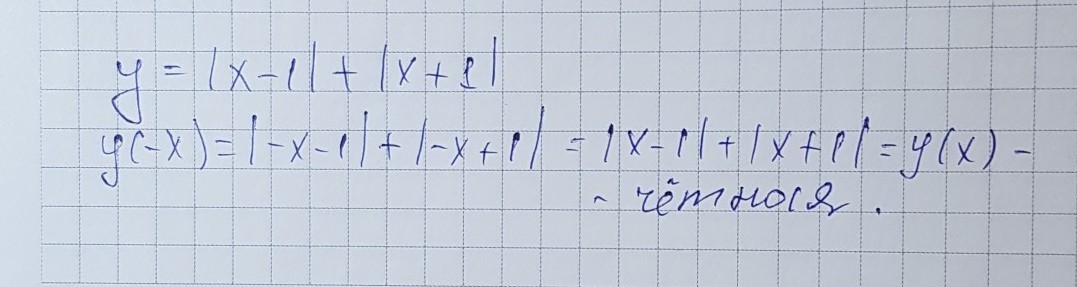 y = |x-1| + |x+1|
y(-x) = |-x-1| + |-x+1| = |x-1| + |x+1| = y(x) -
- чётнося.